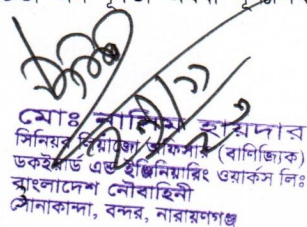 মোঃ নাসিম হায়দার
সিনিয়র লিয়াজো অফিসার (বাণিজ্যিক)
ডকইয়ার্ড এন্ড ইঞ্জিনিয়ারিং ওয়ার্কস লিঃ
বাংলাদেশ নৌবাহিনী
সোনাকান্দা, বন্দর, নারায়ণগঞ্জ